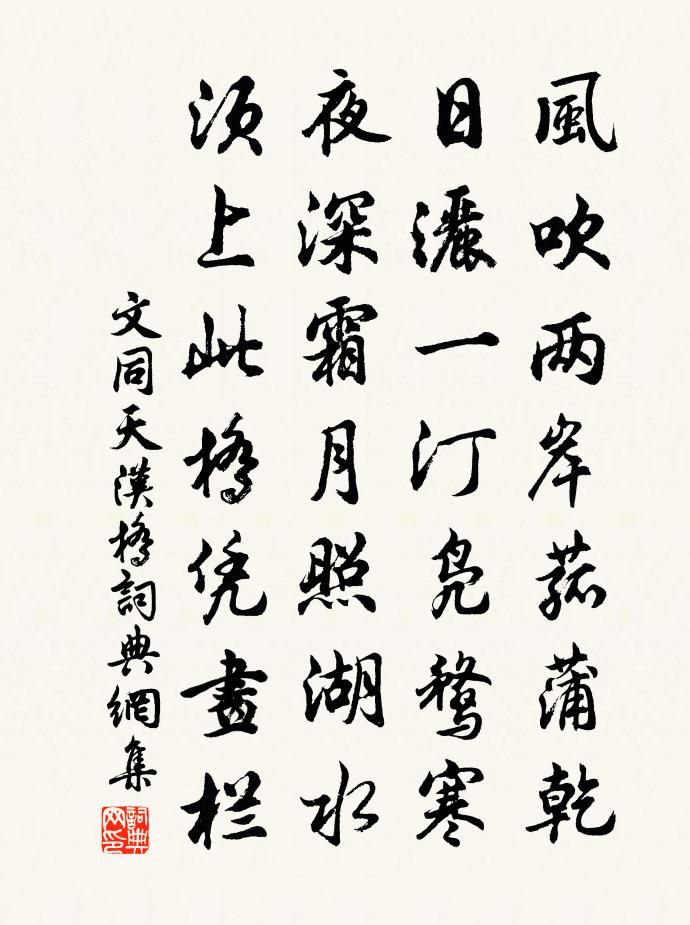 風吹两岸菰蒲乾
日灑一汀鳧鶩寒
夜深霜月照湖水
須上此橋凭畫栏
文同天漢橋詞典網集
詞典网印